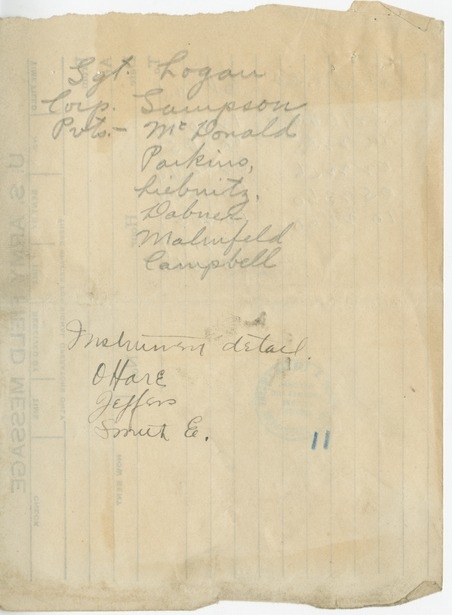 Sgt. Logan
Corp. Sampson
Pvts. - McDonald
Parkins,
Liebnitz,
Dabner,
Malmfeld
Campbell
Instrument detail.
O Hare
Jeffers
Smith E.
11
U. S. ARMY FIELD MESSAGE